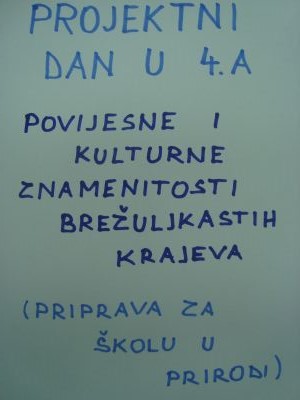 PROJEKTNI
DAN U 4.A
POVIJESNE I
KULTURNE
ZNAMENITOSTI
BREŽULJKASTIH
KRAJEVA
(PRIPRAVA ZA
ŠKOLU U
PRIRODI)